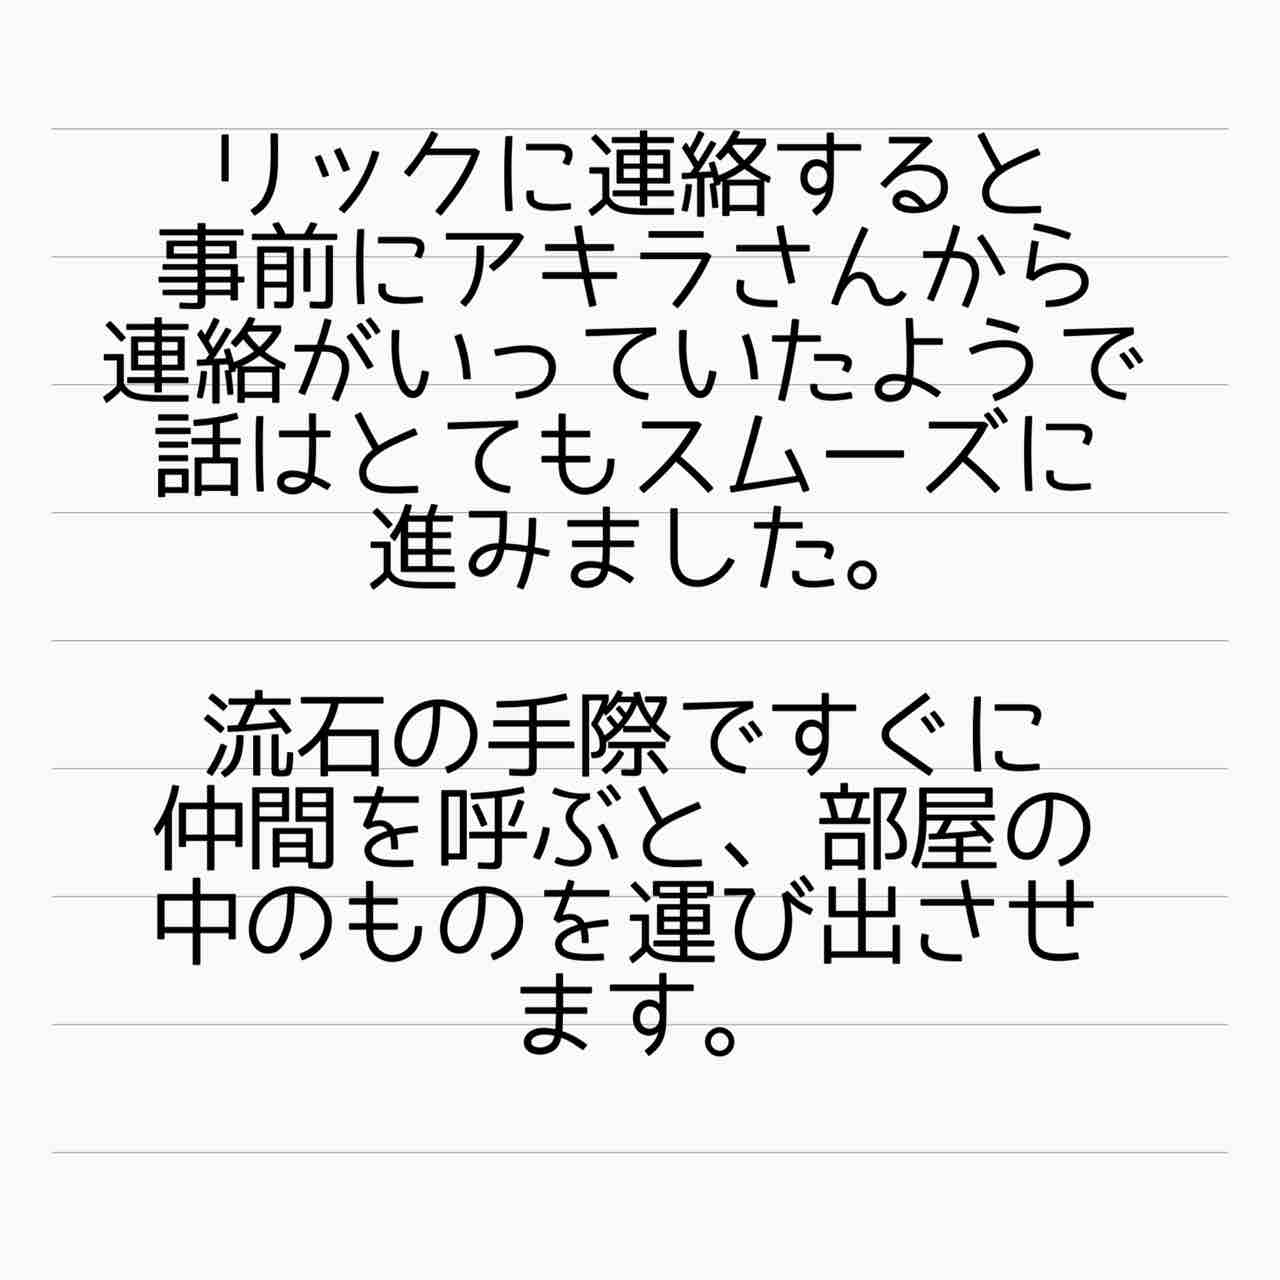 リックに連絡すると
事前にアキラさんから
連絡がいっていたようで
話はとてもスムーズに
進みました。
流石の手際ですぐに
仲間を呼ぶと、部屋の
中のものを運び出させ
ます。